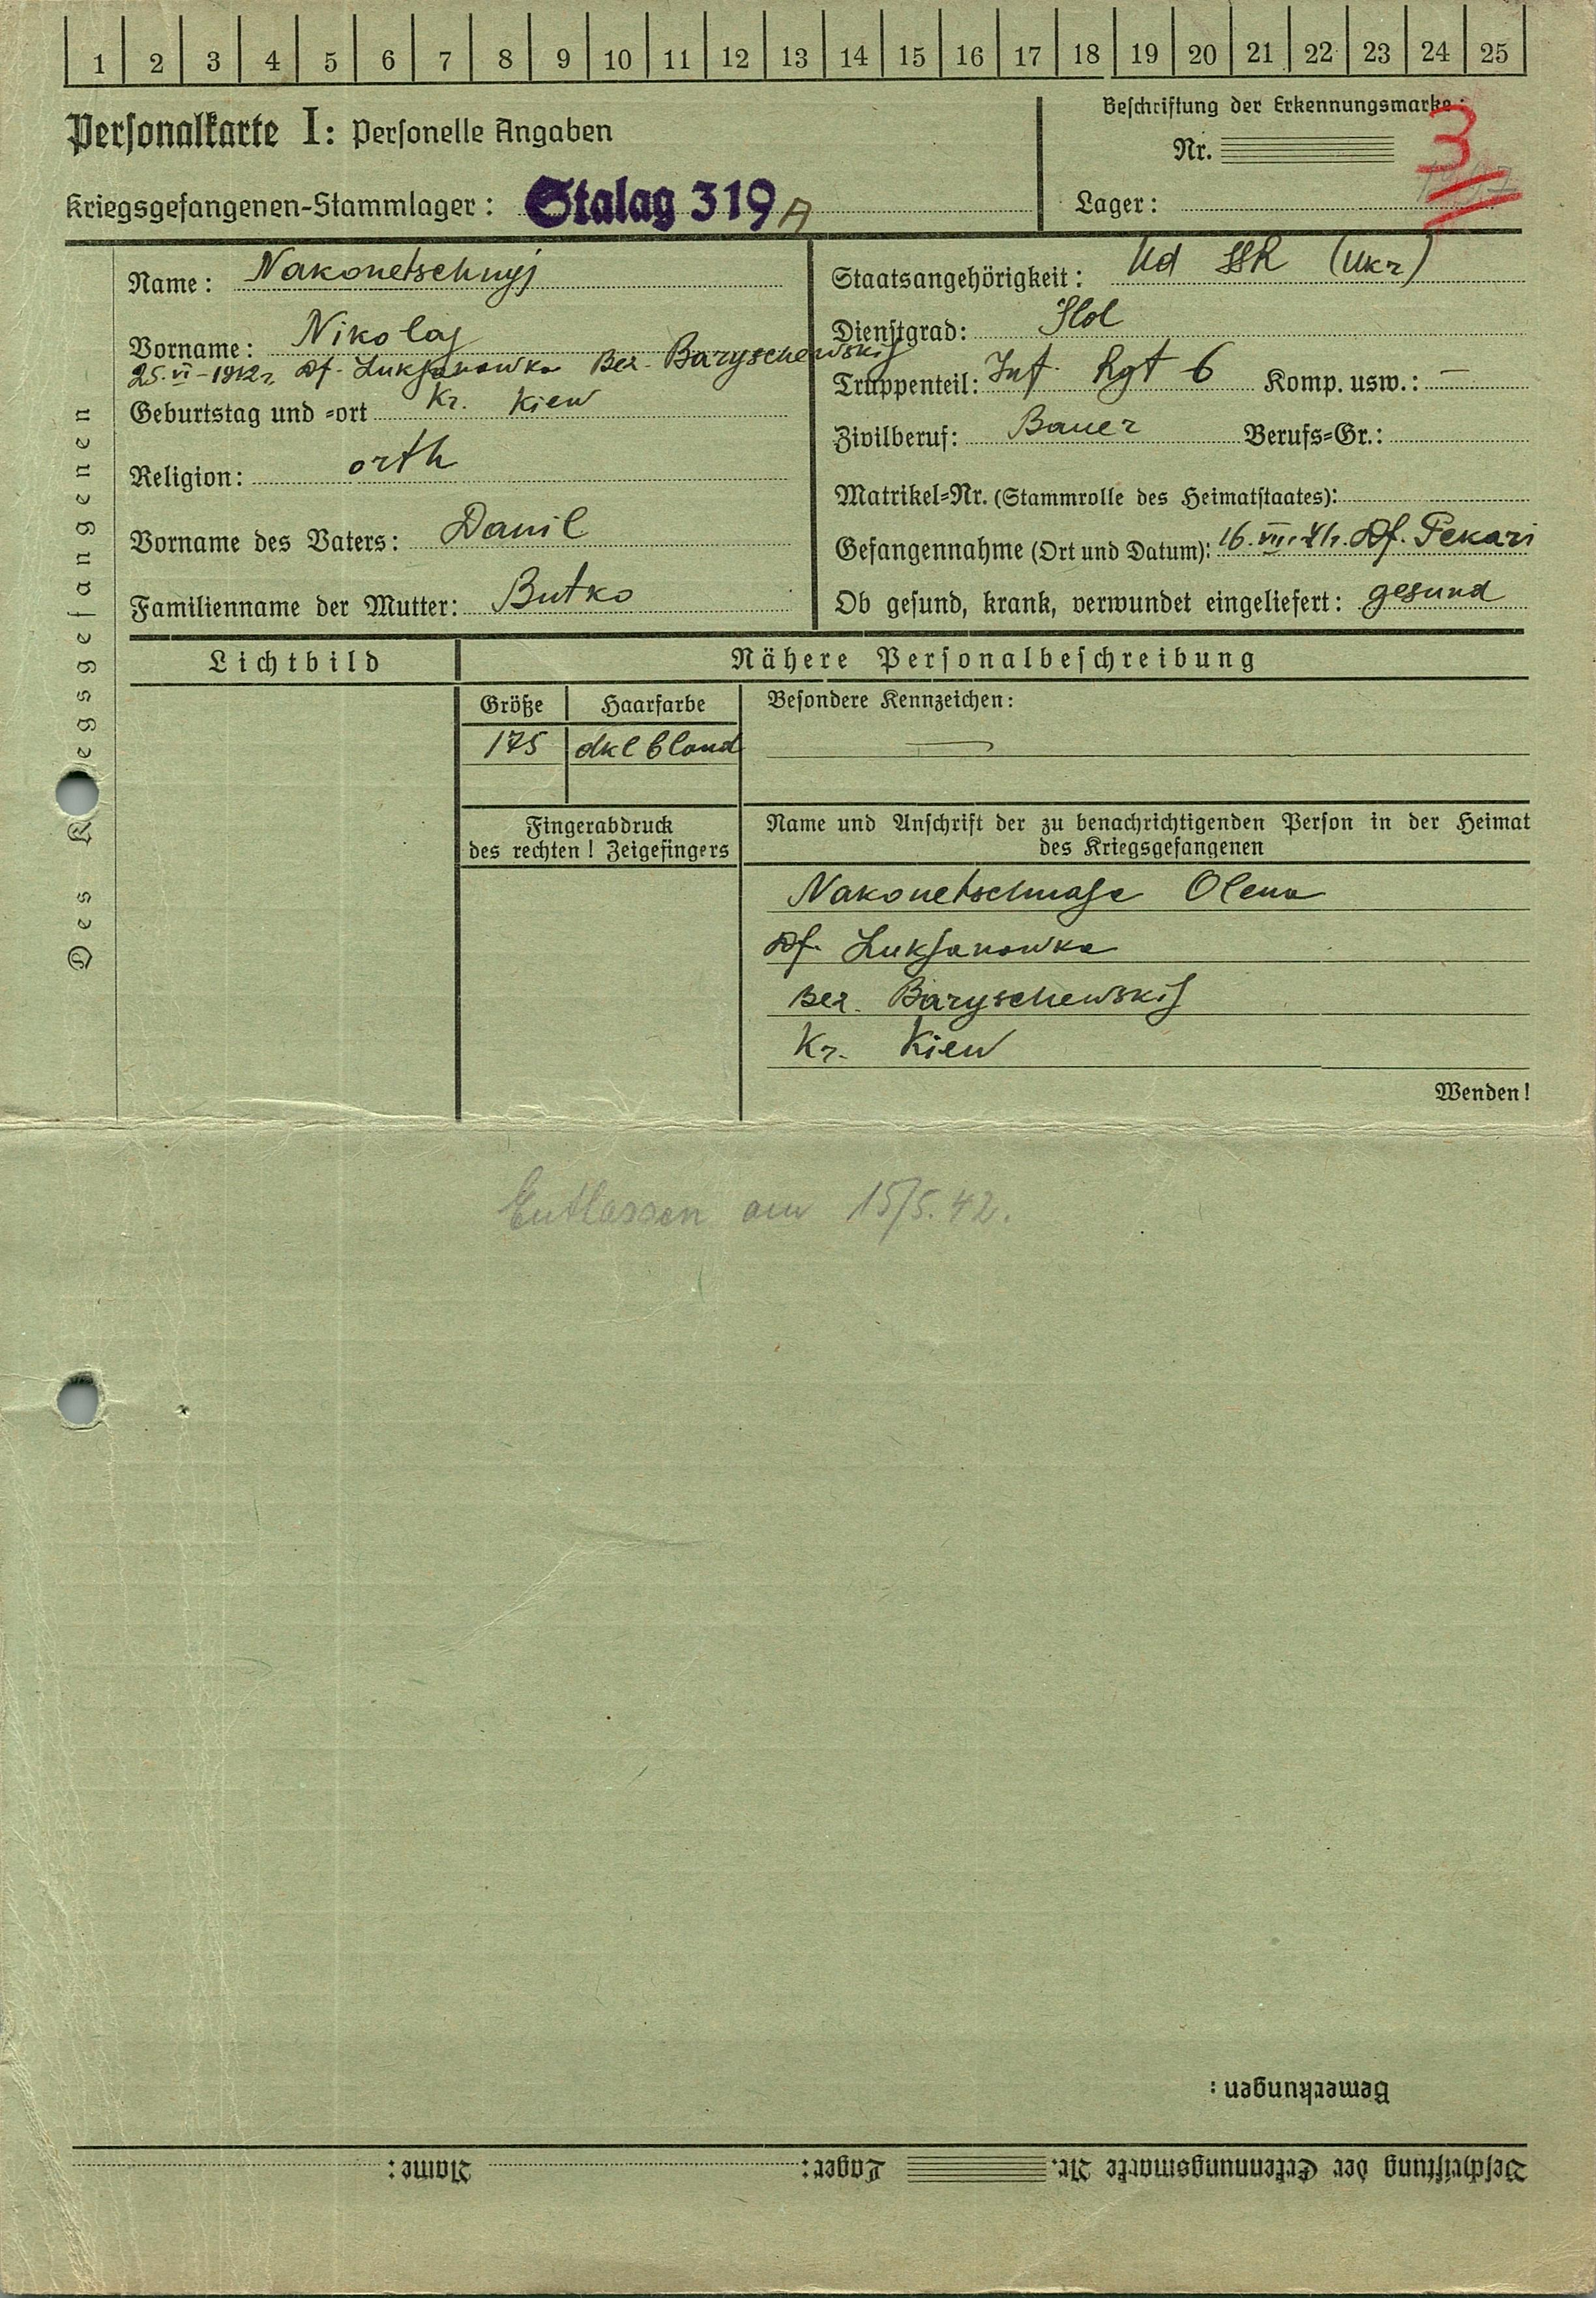 1 2 3 4 5 6 7 8 9 10 11 12 13 14 15 16 17 18 19 20 21 22 23 24 25
Personalkarte I: Personelle Angaben
Kriegsgefangenen-Stammlager: Stalag 319 A
Beschriftung der Erkennungsmarke:
Nr.
3
Lager:
Des Kriegsgefangenen
Name: Nakonetschnyj
Vorname: Nikolaj
25.VI-1912 r. Df. Lukjanowka Bez. Baryschewskij
Geburtstag und =ort Kr. Kiew
Religion: orth
Vorname des Vaters: Danil
Familienname der Mutter: Butko
Staatsangehörigkeit: Ud SSR (Ukr)
Dienstgrad: Slol
Truppenteil: Inf. Rgt 6 Komp. usw.: —
Zivilberuf: Bauer Berufs=Gr.:
Matrikel=Nr. (Stammrolle des Heimatstaates):
Gefangennahme (Ort und Datum): 16.VII.41r. Df. Pekari
Ob gesund, krank, verwundet eingeliefert: gesund
Lichtbild
Nähere Personalbeschreibung
Größe Haarfarbe
175 dkl blond
Besondere Kennzeichen:
—
Fingerabdruck
des rechten! Zeigefingers
Name und Anschrift der zu benachrichtigenden Person in der Heimat
des Kriegsgefangenen
Nakonetschnaje Olena
Df. Lukjanowka
Bez. Baryschewskij
Kr. Kiew
Wenden!
Entlassen am 15/5.42.
Bemerkungen:
Beschriftung der Erkennungsmarke Nr. Lager: Name: